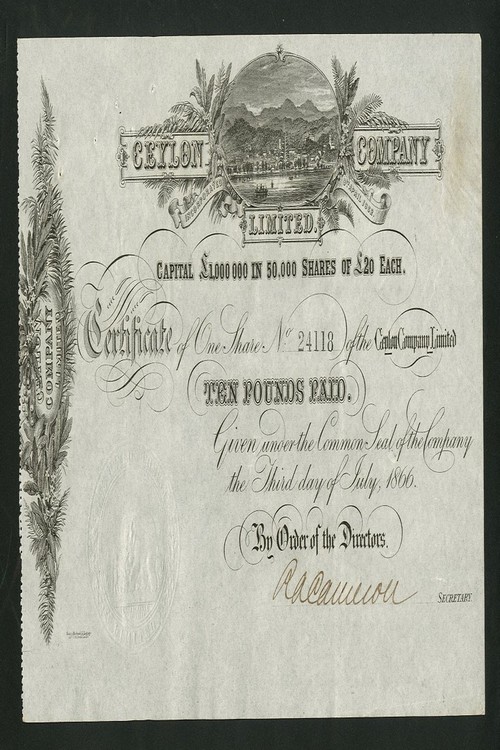 CEYLON COMPANY
LIMITED.
CAPITAL £1,000 000 IN 50,000 SHARES OF £20 EACH.
Certificate of One Share No. 24118 of the Ceylon Company Limited
TEN POUNDS PAID.
Given under the Common Seal of the Company
the Third day of July, 1866.
By Order of the Directors.
R A Cameron SECRETARY
CEYLON
COMPANY
LIMITED